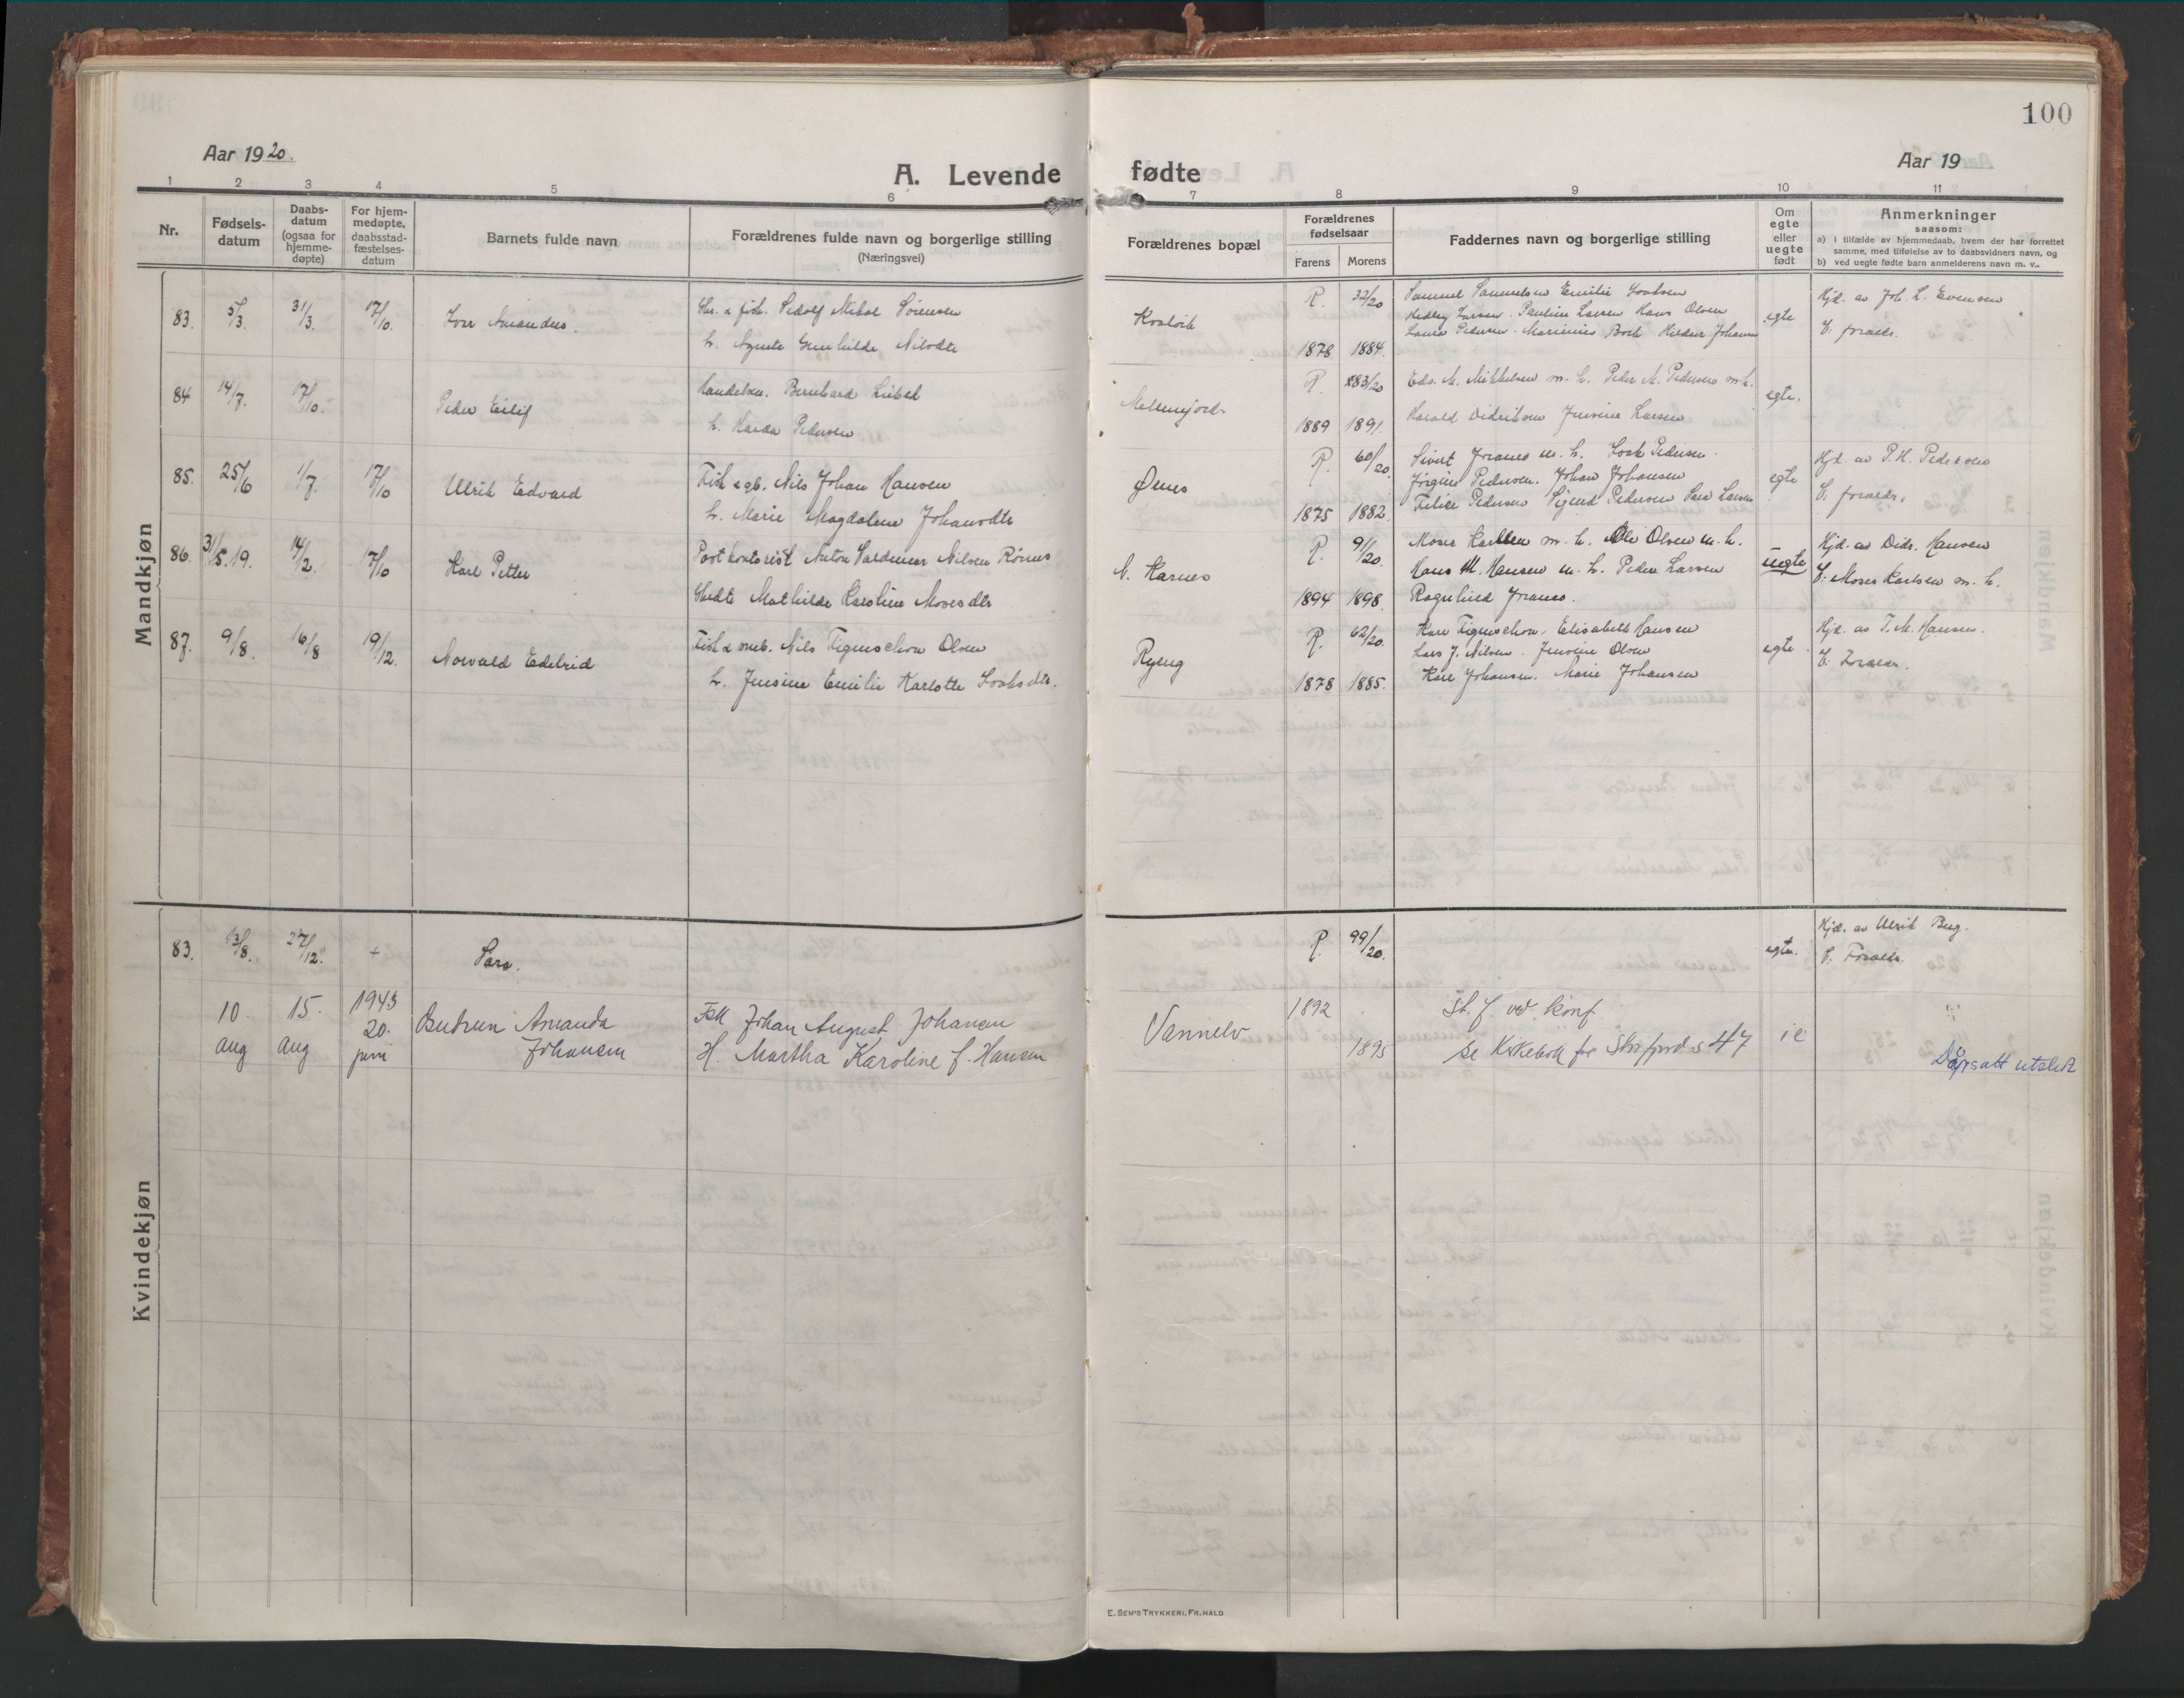 100
Aar 1920.
A. Levende fødte
Aar 19
1 2 3 4 5 6 7 8 9 10 11
Nr.
Fødsels-
datum
Daabs-
datum
(ogsaa for
hjemme-
døpte)
For hjem-
medøpte,
daabsstad-
fæstelses-
datum
Barnets fulde navn
Forældrenes fulde navn og borgerlige stilling
(Næringsvei)
Forældrenes bopæl
Forældrenes
fødselsaar
Farens
Morens
Faddernes navn og borgerlige stilling
Om
egte
eller
uegte
født
Anmerkninger
saasom:
a) i tilfælde av hjemmedaab, hvem der har forrettet
samme, med tilføielse av to daabsvidners navn, og
b) ved uegte fødte barn anmelderens navn m. v..
Mandkjøn
83. 5/3. 31/3. 17/10. Iver Amandus.
fisk. Sedolf Mikal Sørensen
h. Agnete Gunhilde Nilsdtr
R. 32/20
1878 1884.
Samuel Samuelsen Emilie Isaksen
Hedley Larsen. Pauline Larsen Hans Olsen
Laura Pedersen. Marinius Bork Hildur Johansen
egte
Hjd. av Joh. L. Evensen
V. foraldr.
84 14/7. 17/10. Peder Eilif
Handelsm. Bernhard Lribel
h. Harda Pedersen
R. 83/20
1889 1891.
Edv. M. Mikkelsen m. h. Peder M. Pedersen m. h.
Harald Didriksen Jensine Larsen
egte.
85. 25/6 1/7. 17/10 Ulrik Edvard
Fisk & gb. Nils Johan Hansen
h. Marie Magdalene Johansdtr
Ørnes
R. 60/20.
1875 1882.
Sivert Jransen m. h. Isak Pedersen.
Jørgine Pedersen. Johan Johansen
Felice Pedersen Sigurd Pedersen Sara Larsen
egte
Hjd. av P. H. Pedersen
V. foraldr.
86. 31/5.19. 14/2. 17/10 Karl Petter
Postkontorist Anton Valdemar Nilsen Rønes
Mathilde Karoline Mosesdtr
N. Karnes
R. 91/20.
1894 1898.
Moses Karlsen m. h. Ole Olsen m. h.
Hans M. Hansen m. h. Peder Larsen
Ragnhild
uegte
Hjd. av Didr. Hansen
V. Moses Karlsen m. h.
87. 9/8. 16/8 19/12. Norvald Edelrid
Fisk & smb. Nils Figenschou Olsen
h. Jensine Emilie Karlotte Isaksdtr.
Ryeng
R. 62/20.
1878 1885.
Kare Figenschou. Elisabeth Hansen
Lars J. Nilsen. Jensine Olsen
Karl Johansen. Marie Johansen
egte
Hjd. av T. M. Hansen.
V. Foraldr.
Kvindekjøn
83. 13/8. 27/12. + Sara.
R. 99/20.
egte.
Hjd. av Ulrik Berg.
V. Foraldr.
10. aug 15. aug 1943 20. juni
Gudrun Amanda
Johansen
Fsk Johan August Johansen
H. Martha Karoline f. Hansen
Vannelv
1892
1895
St. f. ved konf
se Kirkebok for Storfjord s 47
ie
Dåpsatt utstedt
E. SEM'S TRYKKERI, FR. HALD